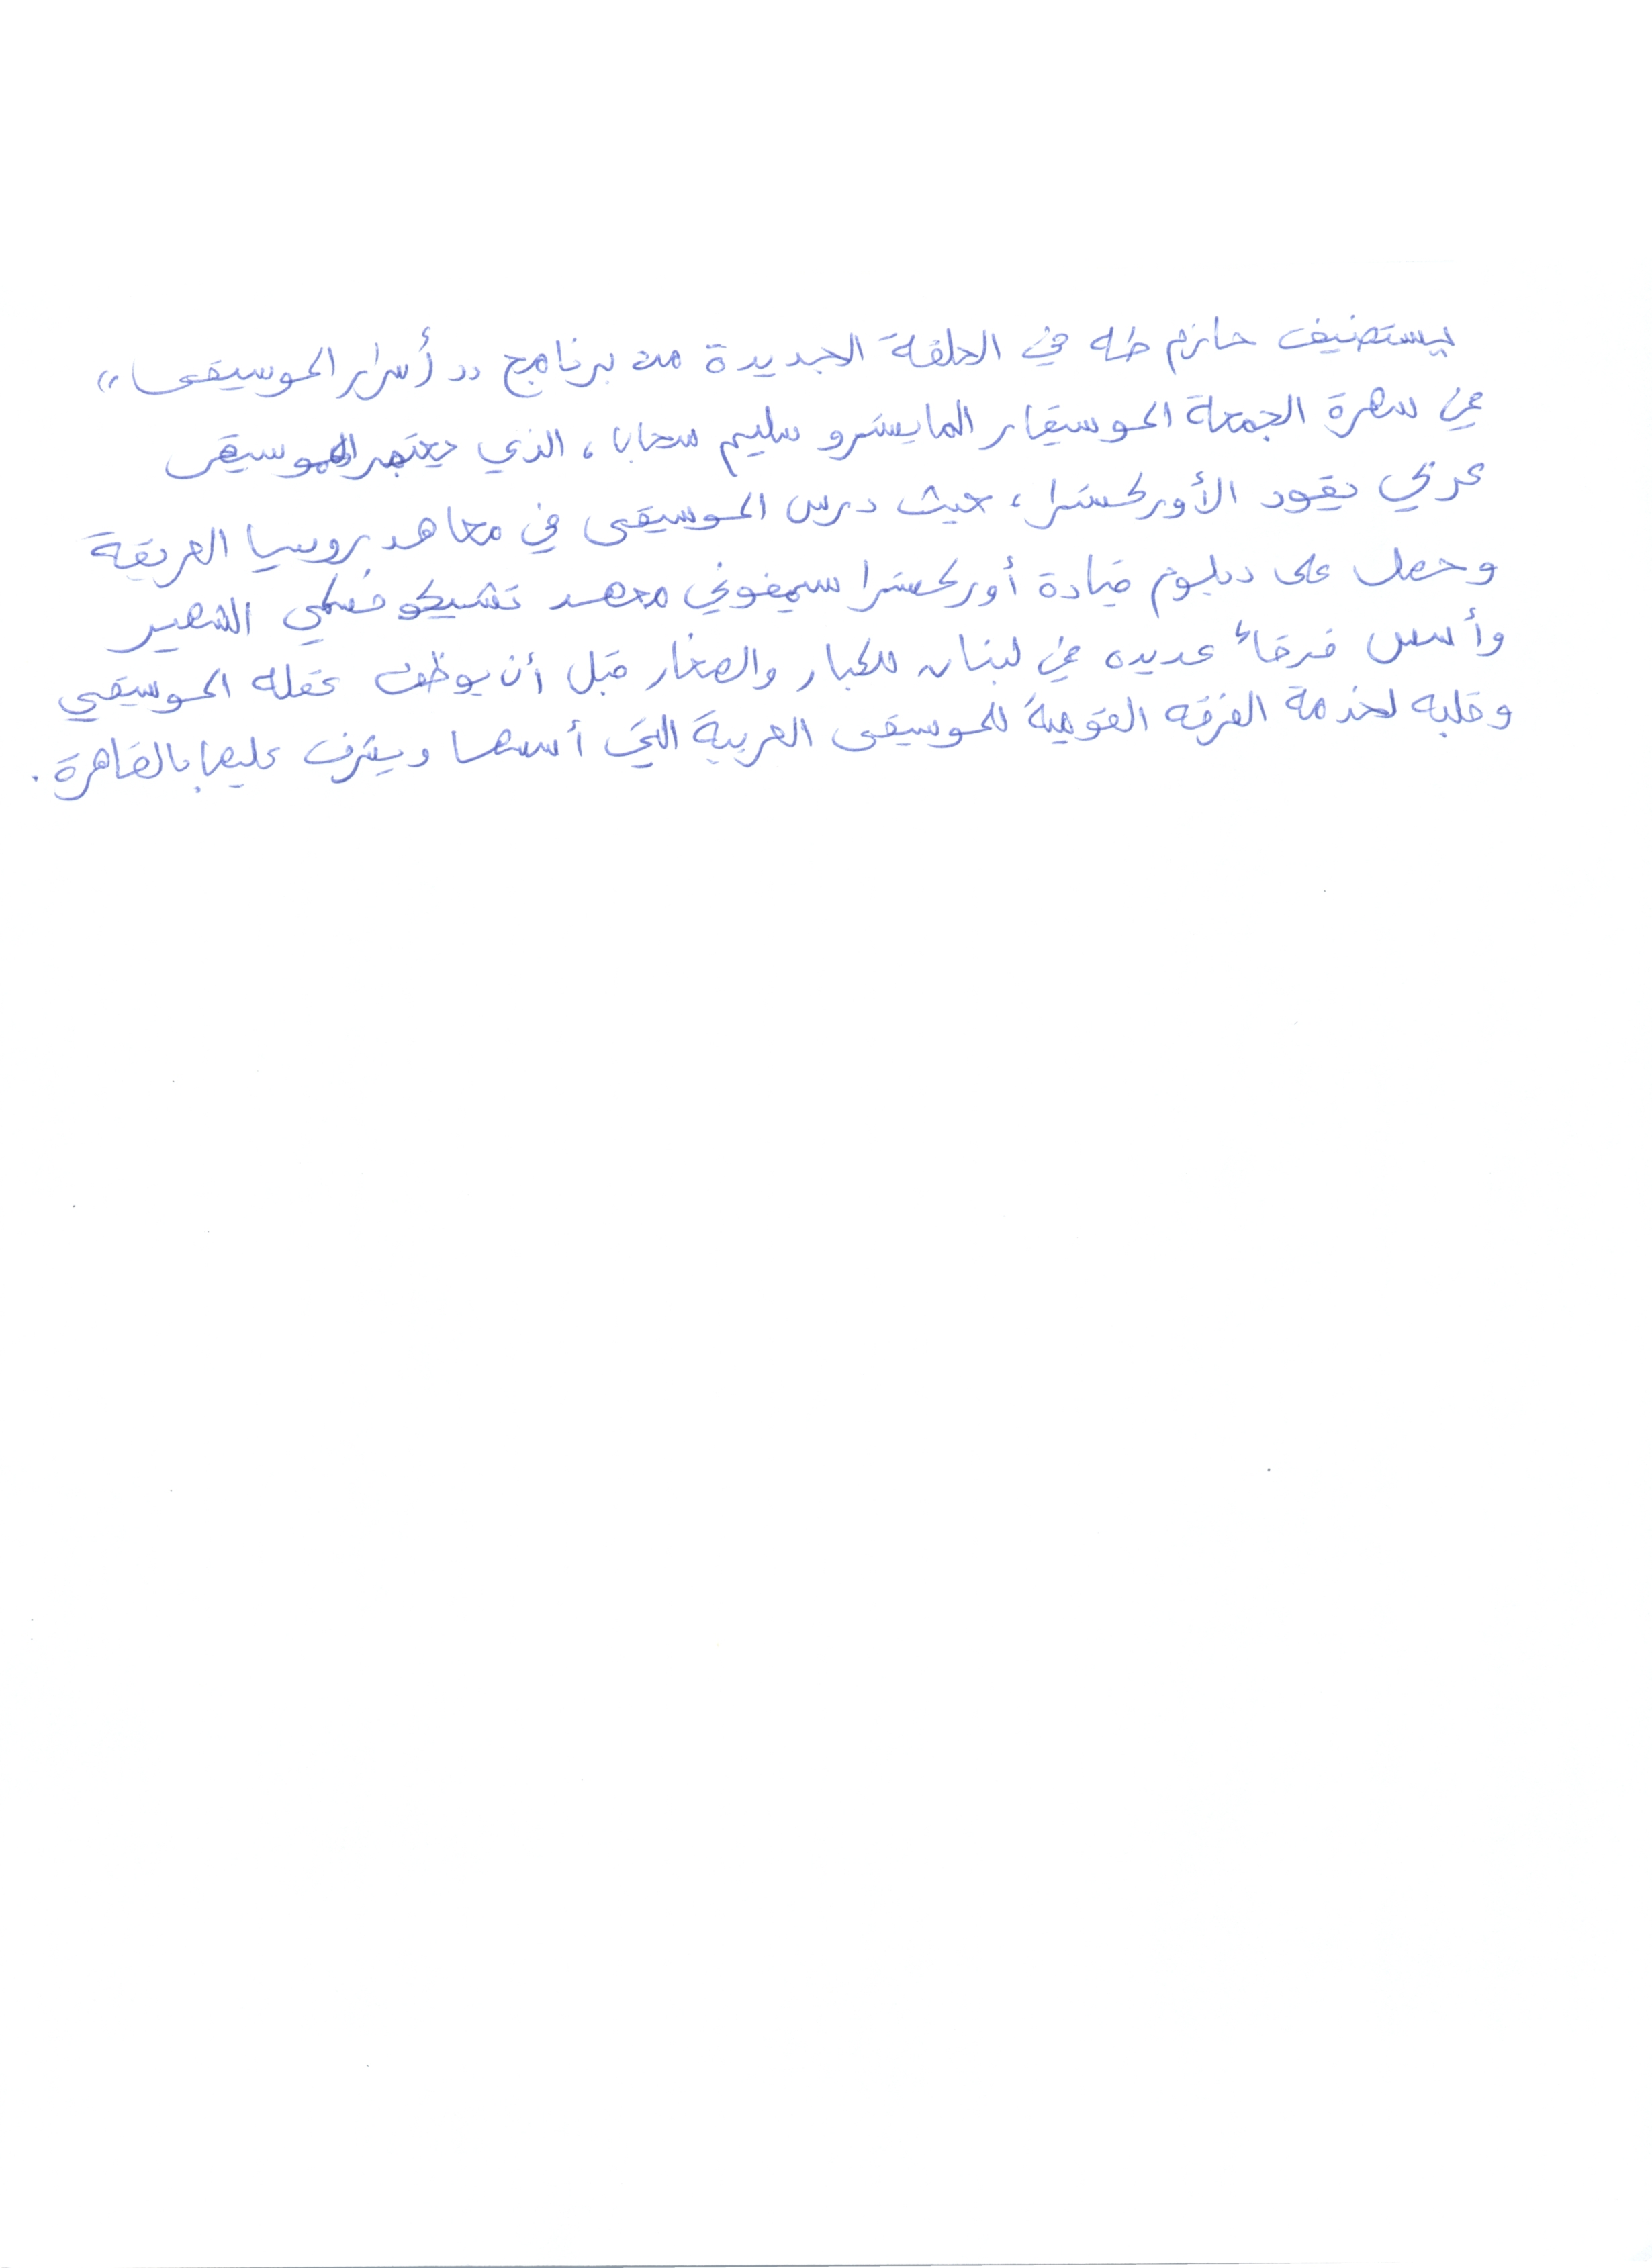 يستضيف حازم طه في الحلقة الجديدة من برنامج "أسرار الموسيقى"
في سهرة الجمعة الموسيقار المايسترو سليم سحابا، الذي يعتبر الموسيقى
عربي يقود الأوركسترا، حيث درس الموسيقى في معاهد روسيا العريقة
وحصل على دبلوم قيادة أوركسترا سيمفوني معهد تشيكوفسكي الشهير
وأسس فرقاً عديده في لبنان للكبار والصغار قبل أن يوظف عقله الموسيقي
وقلبه لخدمة الفرقه القومية للموسيقى العربية التي أسسها ويشرف عليها بالقاهرة.